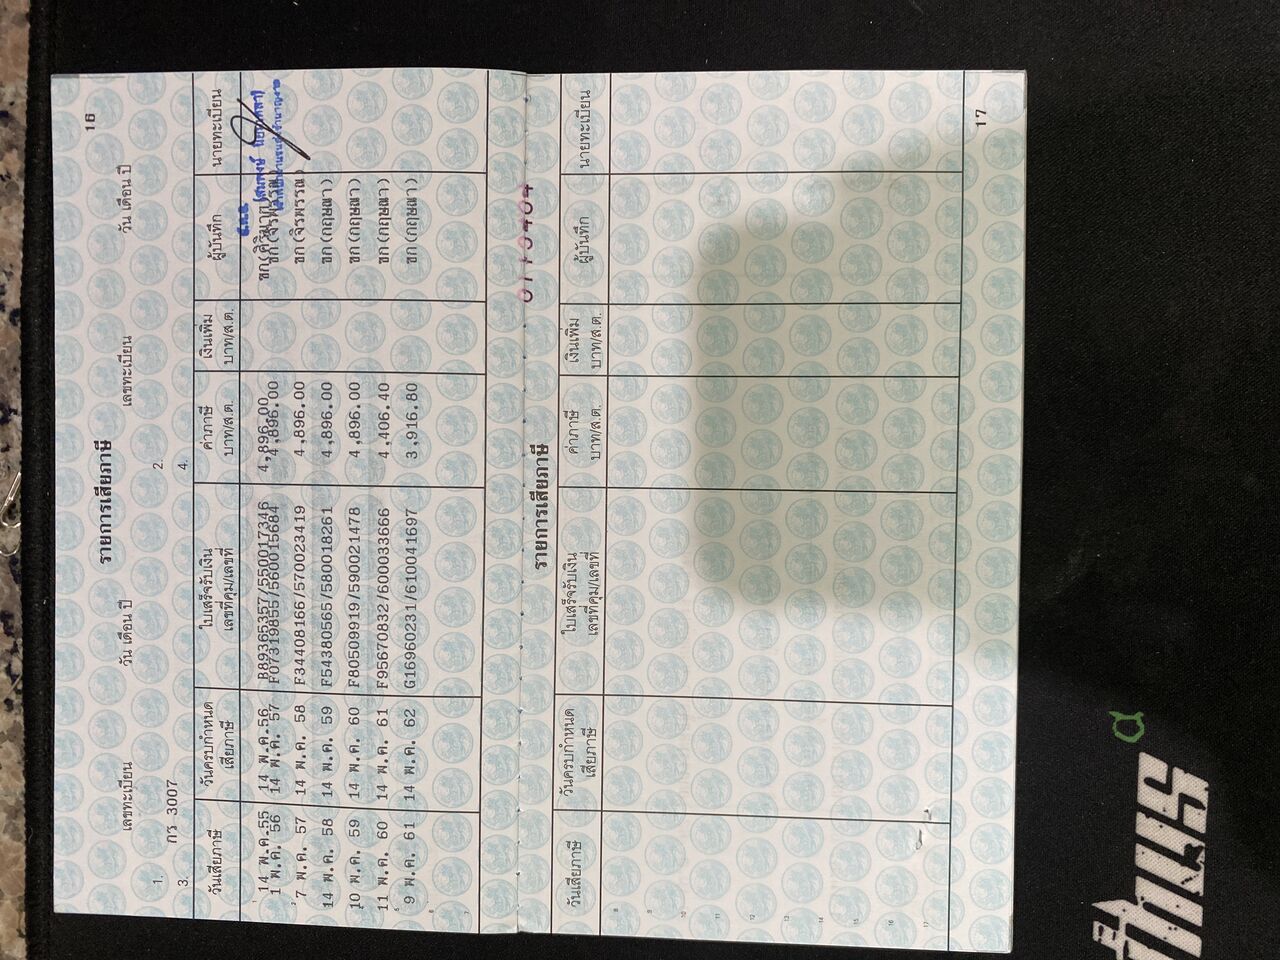 16
รายการเสียภาษี
เลขทะเบียน วัน เดือน ปี เลขทะเบียน วัน เดือน ปี
1. 2.
กร 3007
3. 4.
วันเสียภาษี วันครบกำหนด เสียภาษี ใบเสร็จรับเงิน เลขที่คุม/เลขที่ ค่าภาษี บาท/ส.ต. เงินเพิ่ม บาท/ส.ต. ผู้บันทึก นายทะเบียน
14 พ.ค.55 14 พ.ค.56 B89365357/550017346 4,896.00
1 พ.ค. 56 14 พ.ค. 57 F07319855/560015684 4,896.00 ขก(จิรพรรณ)
7 พ.ค. 57 14 พ.ค. 58 F34408166/570023419 4,896.00 ขก(จิรพรรณ)
14 พ.ค. 58 14 พ.ค. 59 F54380565/580018261 4,896.00 ขก(กฤษณา)
10 พ.ค. 59 14 พ.ค. 60 F80509919/590021478 4,896.00 ขก(กฤษณา)
11 พ.ค. 60 14 พ.ค. 61 F95670832/600033666 4,406.40 ขก(กฤษณา)
9 พ.ค. 61 14 พ.ค. 62 G16960231/610041697 3,916.80 ขก(กฤษณา)
6
7
รายการเสียภาษี
วันเสียภาษี วันครบกำหนด เสียภาษี ใบเสร็จรับเงิน เลขที่คุม/เลขที่ ค่าภาษี บาท/ส.ต. เงินเพิ่ม บาท/ส.ต. ผู้บันทึก นายทะเบียน
8
9
10
11
12
13
14
15
16
17
17